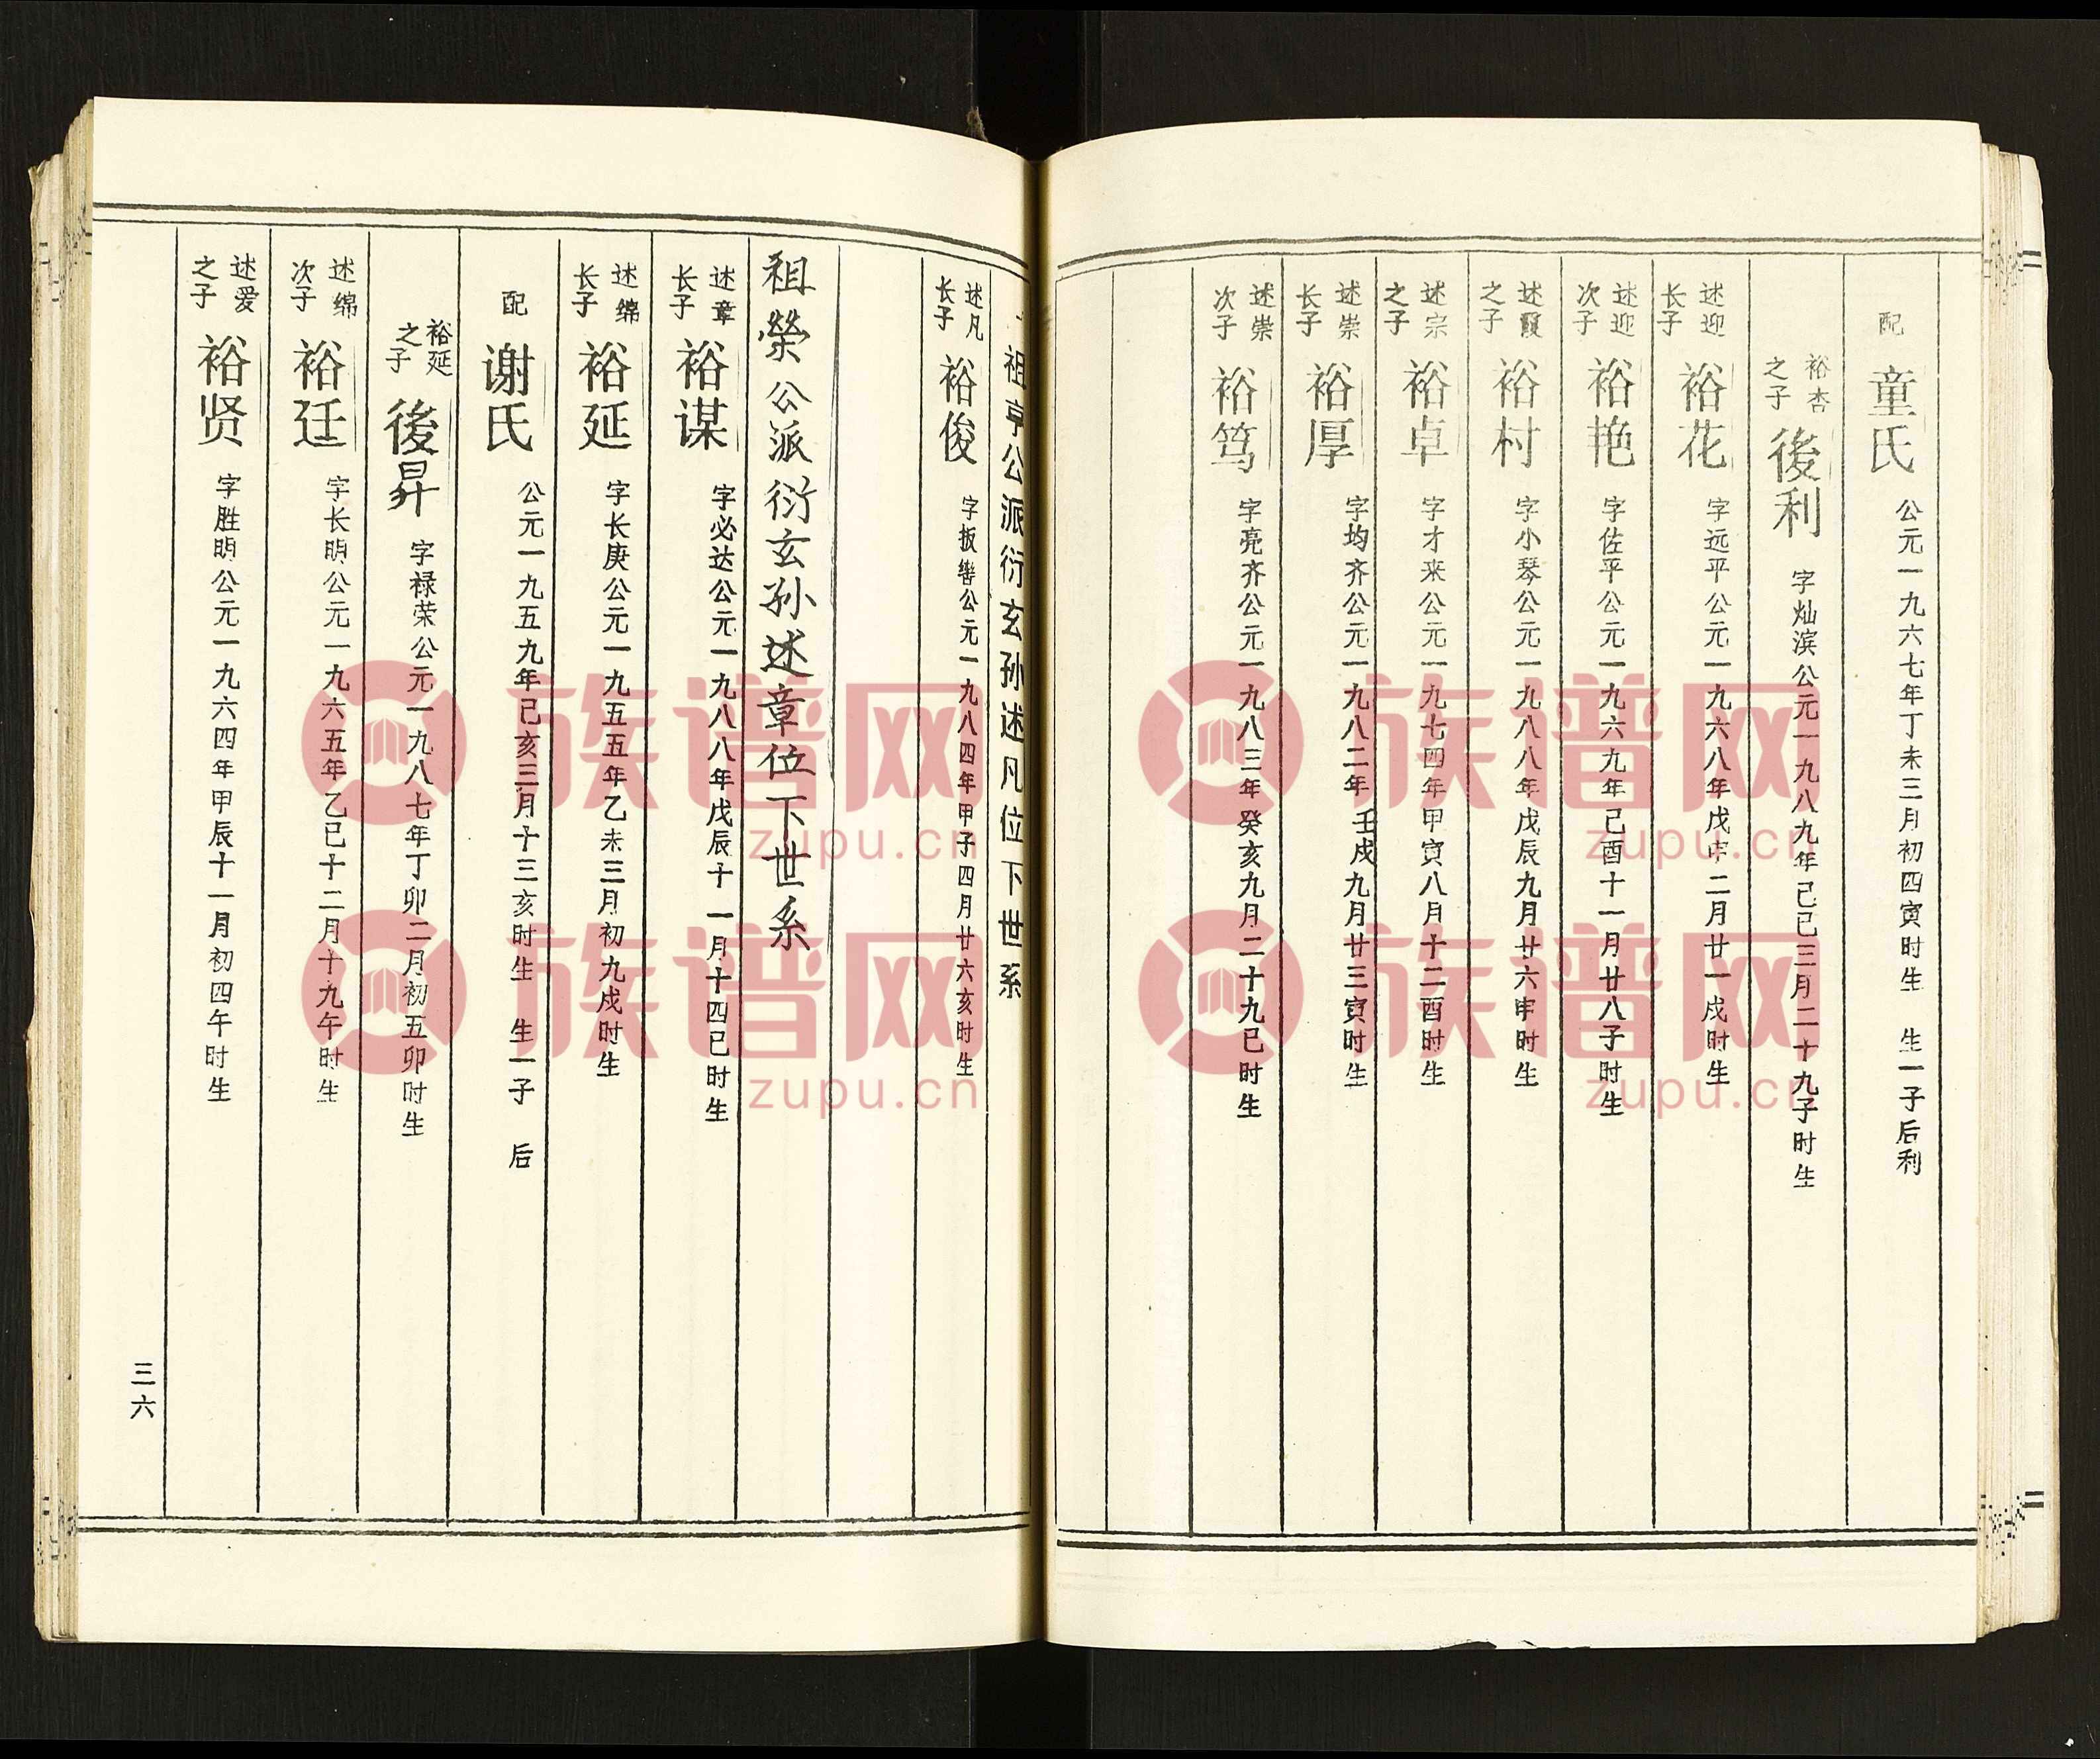 配 童氏 公元一九六七年丁未三月初四寅时生 生一子后利
裕杏之子 後利 字灿滨公元一九八九年己巳三月二十九子时生
述迎长子 裕花 字远平公元一九六八年戊申二月廿一戌时生
述迎次子 裕艳 字佐平公元一九六九年己酉十一月廿八子时生
述霞之子 裕村 字小琴公元一九八八年戊辰九月廿六申时生
述宗之子 裕卓 字才来公元一九七四年甲寅八月十二酉时生
述崇长子 裕厚 字均齐公元一九八二年壬戌九月廿三寅时生
述崇次子 裕笃 字亮齐公元一九八三年癸亥九月二十九巳时生
祖亨公派衍玄孙述凡位下世系
述凡长子 裕俊 字扳辔公元一九八四年甲子四月廿六亥时生
祖榮公派衍玄孙述章位下世系
述章长子 裕谋 字必达公元一九八八年戊辰十一月十四巳时生
述绵长子 裕延 字长庚公元一九五五年乙未三月初九戌时生
配 谢氏 公元一九五九年己亥三月十三亥时生 生一子 后
裕延之子 後昇 字禄荣公元一九八七年丁卯二月初五卯时生
述绵次子 裕廷 字长明公元一九六五年乙巳十二月十九午时生
述爱之子 裕贤 字胜明公元一九六四年甲辰十一月初四午时生
三六
族谱网 zupu.cn
族谱网 zupu.cn
族谱网 zupu.cn
族谱网 zupu.cn